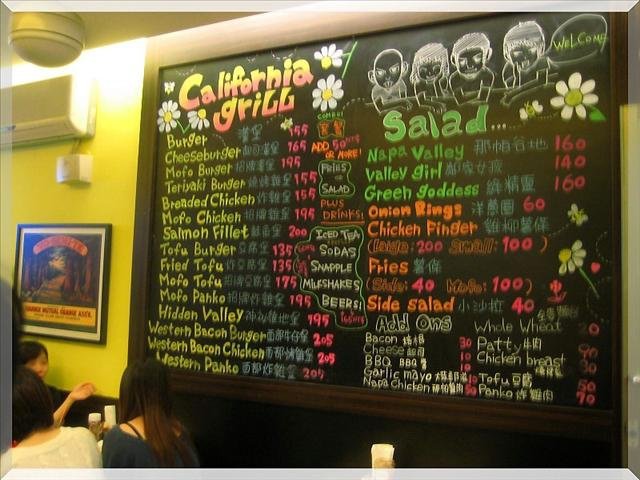 California
grill
Burger 漢堡 155
Cheeseburger 起司漢堡 165
Mofo Burger 招牌漢堡 195
Teriyaki Burger 燒烤雞堡 155
Breaded Chicken 炸雞堡 155
Mofo Chicken 招牌雞堡 195
Salmon Fillet 鮭魚堡 200
Tofu Burger 豆腐堡 135
Fried Tofu 炸豆腐堡 135
Mofo Tofu 招牌豆腐堡 175
Mofo Panko 招牌炸雞堡 195
Hidden Valley 195
Western Bacon Burger 西部牛仔堡 205
Western Bacon Chicken 西部烤雞堡 205
Western Panko 西部炸雞堡 205
COMBO!
套餐
ADD 50
OR MORE!
FRIES
OR
SALAD
PLUS
DRINKS:
ICED TEA
SODAS
SNAPPLE
MILKSHAKES
BEERS!
WELCOME
Salad...
Napa Valley 那帕谷地 160
Valley girl 鄰家女孩 140
Green goddess 綠精靈 160
Onion Rings 洋蔥圈 60
Chicken Finger 雞柳薯條
(Large: 200 Small: 100)
Fries 薯條
(Side: 40 Mofo: 100)
Side salad 小沙拉 40
Add Ons
Bacon 培根 30
Cheese 起司 10
BBQ BBQ 醬 10
Garlic mayo 大蒜醬 10
Napa Chicken 那帕雞肉 50
Whole Wheat 20
Patty 牛肉 90
Chicken breast 30
Tofu 豆腐 50
Panko 炸雞肉 70